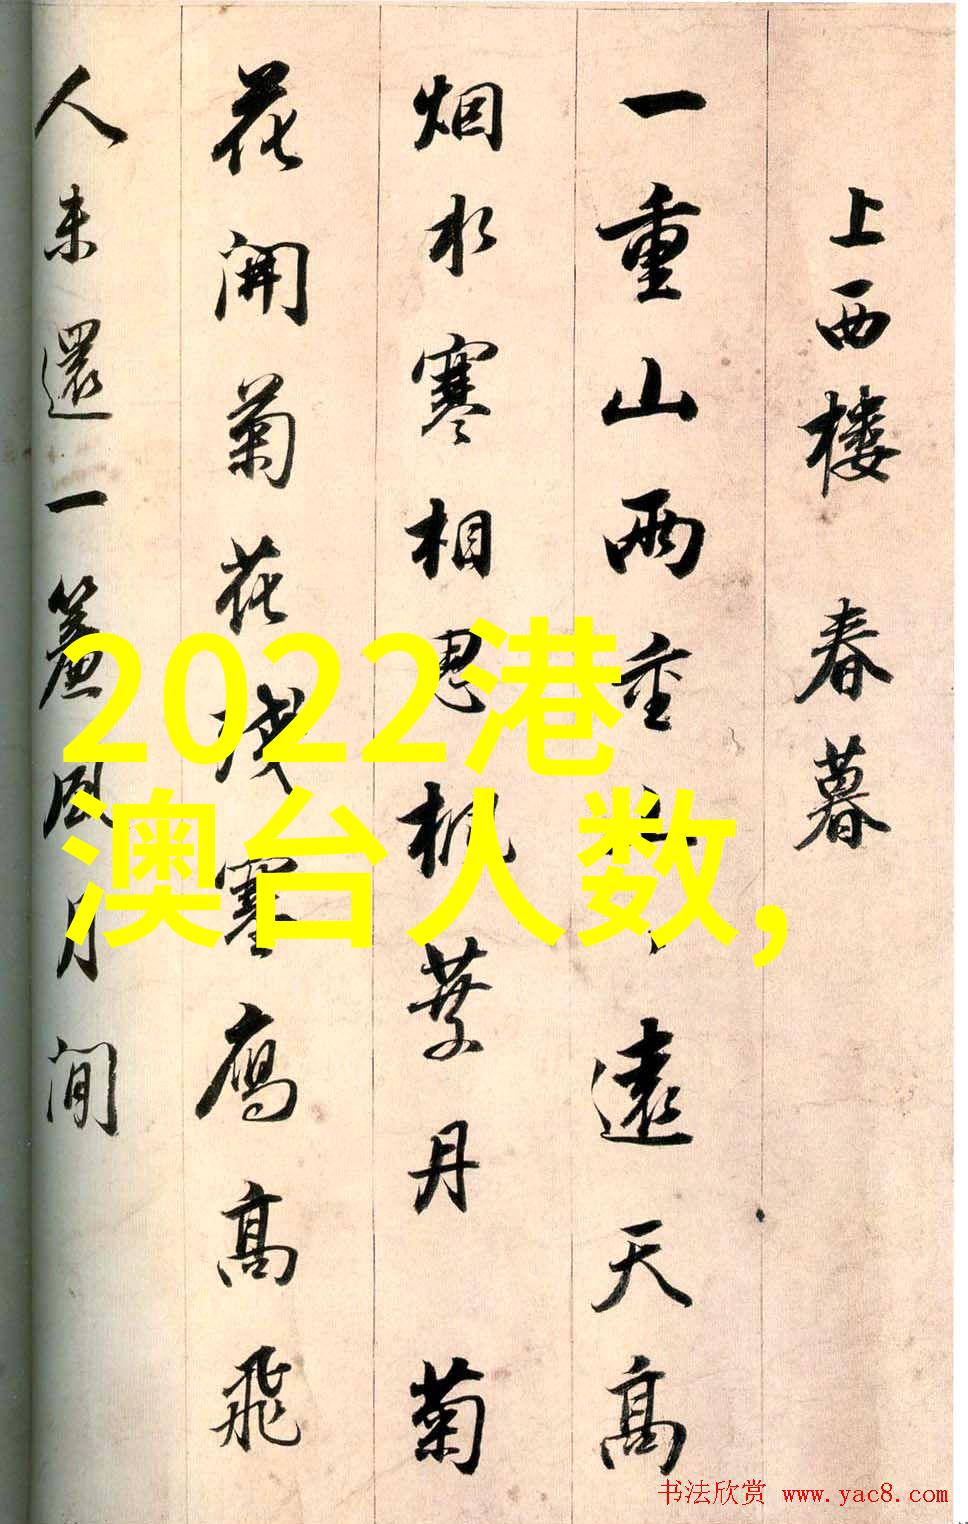 上西楼 春暮
一重山兩重遠天高
烟水寒相思枫葉丹 菊
花開菊花残塞雁高飛
人未還一簾風月閒
2022港
澳台人数,
书法欣赏 www.yac8.com